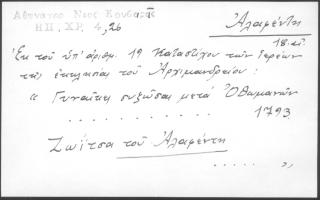 Ἀθηναγόρας Νέος Κουβαρᾶς
ΗΠ. ΧΡ. 4, 26
Ἀλαφέντη
18.αἰ
Ἐκ τοῦ ὑπ' ἀριθμ. 19 Καταστίχου τῶν Ἱερέων
τῆς ἐκκλησίας τοῦ Ἀρχιμανδρείου:
" Γυναῖκες συζῶσαι μετά Ὀθωμανῶν
. . . . . . . . . . . . 1793
Ζωίτσα τοῦ Ἀλαφέντη
. . . . . "